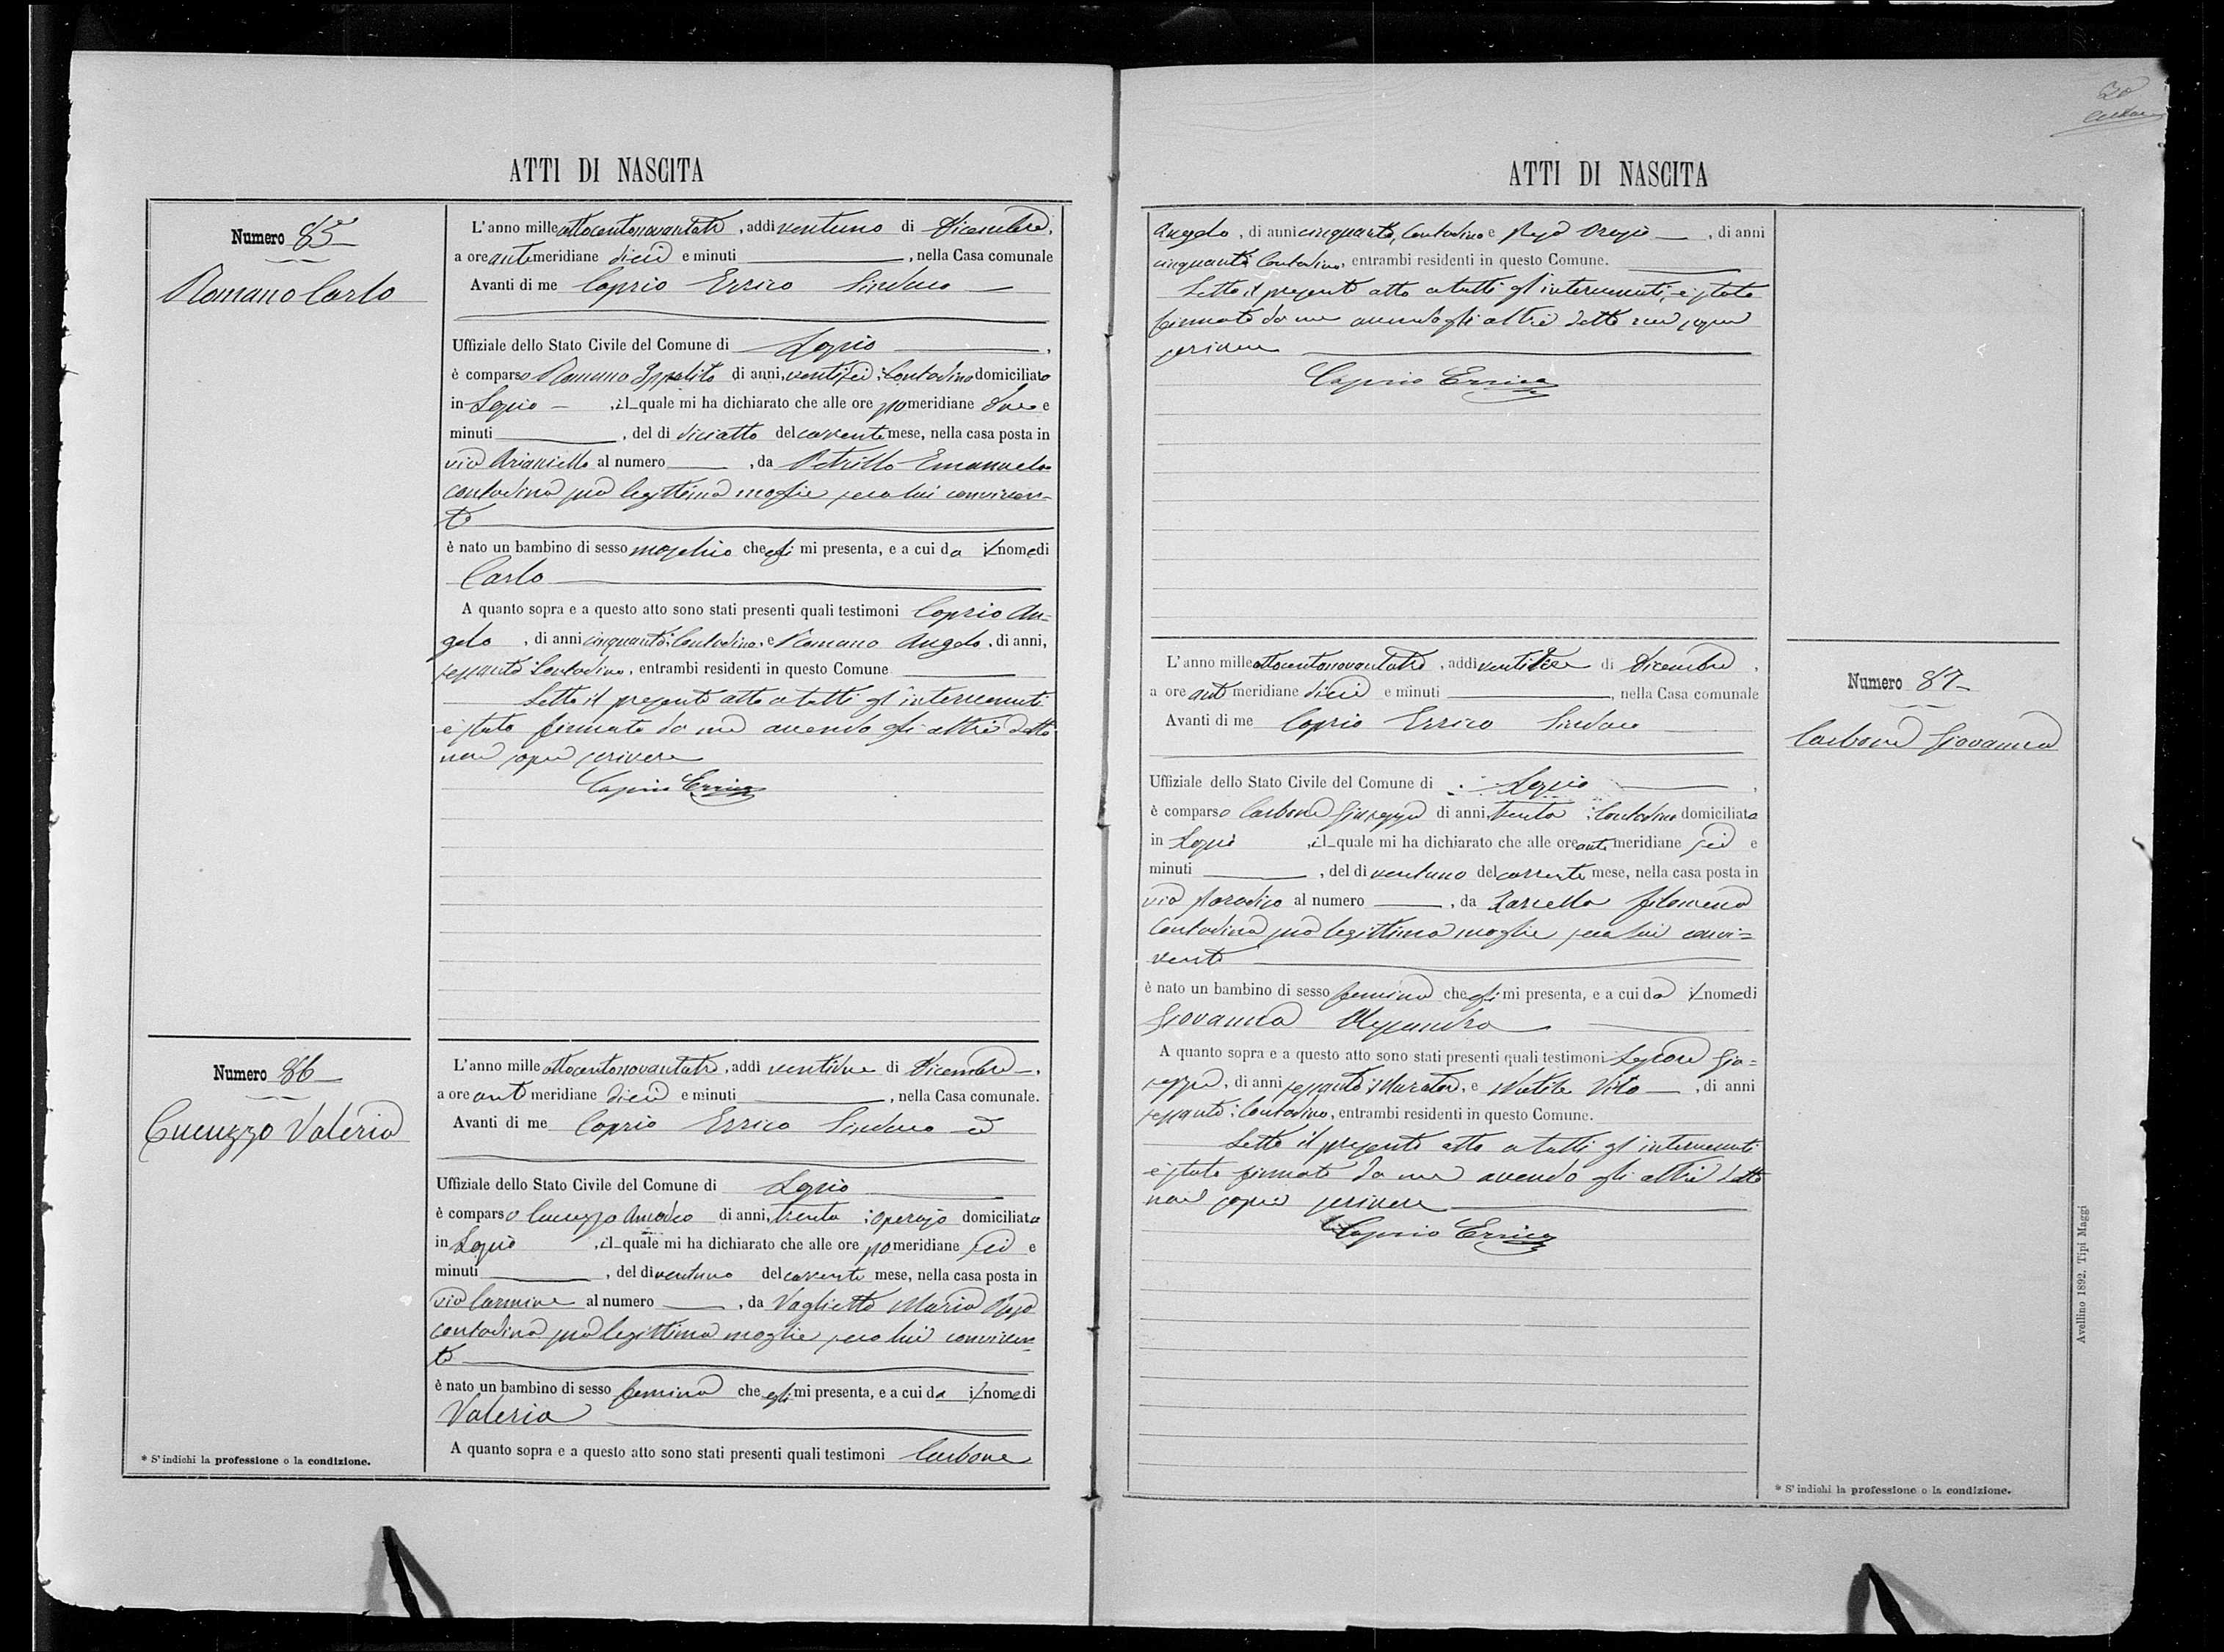 ATTI DI NASCITA
Numero 85
Romano Carlo
L'anno mille ottocentonovantatre, addì ventuno di Dicembre,
a ore antimeridiane dieci e minuti, nella Casa comunale
Avanti di me Caprio Errico Sindaco
Uffiziale dello Stato Civile del Comune di Lapio,
è comparso Romano Ippolito di anni ventisei; Contadino domiciliato
in Lapio, il quale mi ha dichiarato che alle ore pomeridiane due e
minuti, del dì diciotto del corrente mese, nella casa posta in
via Arianiello al numero, da Petrillo Emanuela
contadina sua legittima moglie, seco lui conviven-
te
è nato un bambino di sesso maschio che egli mi presenta, e a cui da il nome di
Carlo
A quanto sopra e a questo atto sono stati presenti quali testimoni Caprio An-
gelo, di anni cinquanta; Contadino, e Romano Angelo, di anni,
sessanta; Contadino, entrambi residenti in questo Comune
Letto il presente atto a tutti gl'intervenuti
è stato firmato da me avendo gli altri detto
non saper scrivere
Caprio Errico
Numero 86
Cucuzzo Valeria
L'anno mille ottocentonovantatre, addì ventidue di Dicembre,
a ore antimeridiane dieci e minuti, nella Casa comunale.
Avanti di me Caprio Errico Sindaco
Uffiziale dello Stato Civile del Comune di Lapio
è comparso Cucuzzo Amodeo di anni, trenta; operajo domiciliato
in Lapio, il quale mi ha dichiarato che alle ore pomeridiane sei e
minuti, del dì ventuno del corrente mese, nella casa posta in
via Carmine al numero, da Vaglietto Maria Rosa
contadina sua legittima moglie, seco lui conviven-
te
è nato un bambino di sesso femina che egli mi presenta, e a cui da il nome di
Valeria
A quanto sopra e a questo atto sono stati presenti quali testimoni Carbone
* S'indichi la professione o la condizione.
20
ATTI DI NASCITA
Angelo, di anni cinquanta, Contadino e Orazio, di anni
cinquanta Contadino, entrambi residenti in questo Comune.
Letto il presente atto a tutti gl'intervenuti, è stato
firmato da me avendo gli altri detto non saper
scrivere
Caprio Errico
Numero 87
Carbone Giovanna
L'anno mille ottocentonovantatre, addì ventitre di Dicembre,
a ore antimeridiane dieci e minuti, nella Casa comunale
Avanti di me Caprio Errico Sindaco
Uffiziale dello Stato Civile del Comune di Lapio,
è comparso Carbone Giuseppe di anni, trenta; Contadino domiciliato
in Lapio, il quale mi ha dichiarato che alle ore antimeridiane sei e
minuti, del dì ventuno del corrente mese, nella casa posta in
via Paradiso al numero, da Zarrella Filomena
Contadina sua legittima moglie, seco lui convi=
vente
è nato un bambino di sesso femina che egli mi presenta, e a cui da il nome di
Giovanna Alessandra
A quanto sopra e a questo atto sono stati presenti quali testimoni Gio=
seppe, di anni sessanta; Murator, e Vito, di anni
sessanta; Contadino, entrambi residenti in questo Comune.
Letto il presente atto a tutti gl'intervenuti
è stato firmato da me avendo gli altri detto
non saper scrivere
Caprio Errico
* S'indichi la professione o la condizione.
Avellino 1892. Tipi Maggi